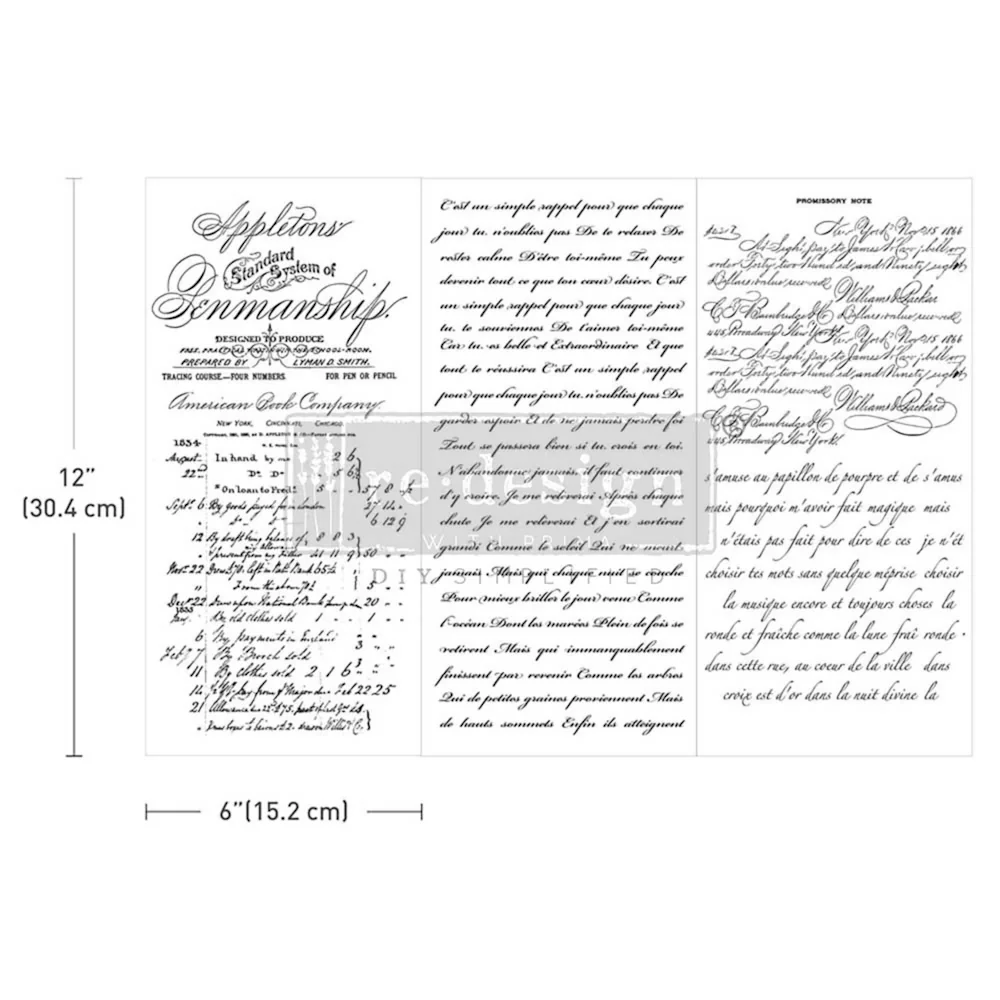 12”
(30.4 cm)
6”(15.2 cm)
Appletons'
Standard
System of
Penmanship.
DESIGNED TO PRODUCE
PREPARED BY LYMAN D. SMITH.
TRACING COURSE—FOUR NUMBERS. FOR PEN OR PENCIL
American Book Company.
NEW YORK, CINCINNATI, CHICAGO.
1834
August In hand by me 2 6
22 Do Do 5 6
*On loan to Fred: 5 57 8
Sept. 6 By goods payed for in London 27 14
6 12 9
12 By draft being balance of 8 0 3
41 11 9 50
Nov. 22
5
Decr 22 National Bank 20
1835
Jany. By old clothes sold 1 1
6 My payments in England 3
Feb 7 7 By Brooch sold 3
11 By clothes sold 2 1 6
14 Feb 22 25
21 Allowance
C'est un simple rappel pour que chaque
jour tu n'oublies pas De te relaxer De
rester calme D'être toi-même Tu peux
devenir tout ce que ton cœur désire. C'est
un simple rappel pour que chaque jour
tu te souviennes De t'aimer toi-même
Car tu es belle et Extraordinaire Et que
tout te réussira C'est un simple rappel
pour que chaque jour tu n'oublies pas De
garder espoir Et de ne jamais perdre foi
Tout se passera bien si tu crois en toi.
N'abandonne jamais, il faut continuer
d'y croire. Je me relèverai Après chaque
chute Je me relèverai Et j'en sortirai
grandi Comme le soleil Qui ne meurt
jamais Mais qui chaque nuit se couche
Pour mieux briller le jour venu Comme
l'océan Dont les marées Plein de fois se
retirent Mais qui immanquablement
finissent par revenir Comme les arbres
Qui de petites graines proviennent Mais
de hauts sommets Enfin ils atteignent
PROMISSORY NOTE
New York, Nov 15 1866
At Sight, pay to James W. Car; bill or
order Forty two Hundred, and Ninety eight
Dollars value received
Williams & Packar
C. T. Bainbridge & Co Dollars value received
445, Broadway New York. New York, Nov 15 1866
At Sight, pay to James W. Car; bill or
order Forty two Hundred, and Ninety eight
Dollars value received
Williams & Packard
C. T. Bainbridge & Co
445, Broadway New York.
s'amuse au papillon de pourpre et de s'amus
mais pourquoi m'avoir fait magique mais
n'étais pas fait pour dire de ces je n'ét
choisir tes mots sans quelque méprise choisir
la musique encore et toujours choses la
ronde et fraîche comme la lune fraî ronde
dans cette rue, au coeur de la ville dans
croix est d'or dans la nuit divine la
re·design
WITH PRIMA
DIY SIMPLIFIED